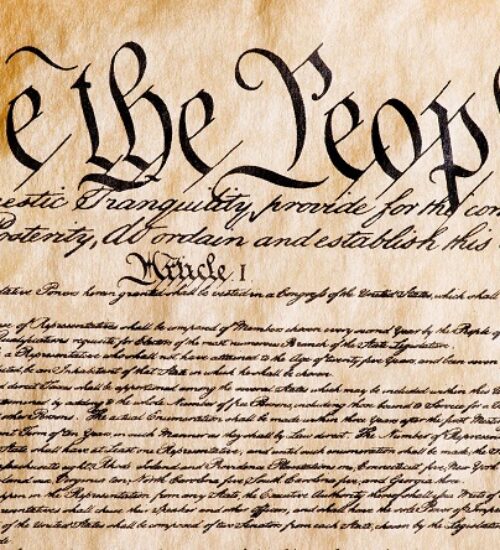 e the Peop
estic Tranquility, provide for the com
Posterity, do ordain and establish this
Article. I
lative Powers herein granted shall be vested in a Congress of the United States, which shall
of Representatives shall be composed of Members chosen every second Year by the People of
Qualifications requisite for Electors of the most numerous Branch of the State Legislature.
a Representative who shall not have attained to the Age of twenty five Years, and been seven
be an Inhabitant of that State in which he shall be chosen.
direct Taxes shall be apportioned among the several States which may be included within this
by adding to the whole Number of free Persons, including those bound to Service for a
other Persons. The actual Enumeration shall be made within three Years after the first
Term of ten Years, in such Manner as they shall by Law direct. The Number of
State shall have at Least one Representative; and until such enumeration shall be made, the
eight, Rhode Island and Providence Plantations one, Connecticut five, New York
one, Virginia ten, North Carolina five, South Carolina five, and Georgia three.
happen in the Representation from any State, the Executive Authority thereof shall issue Writs of
shall chuse their Speaker and other Officers; and shall have the sole Power of
of the United States shall be composed of two Senators from each State, chosen by the Legislature